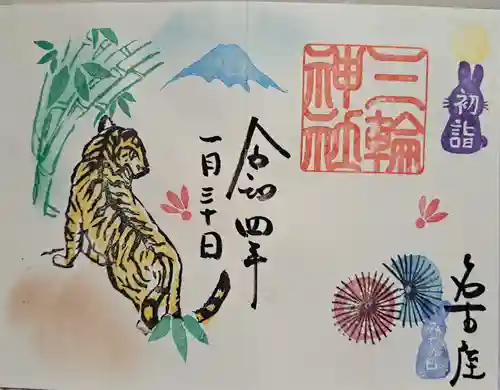 三輪
神社
初詣
令和四年
一月三十日
名古屋